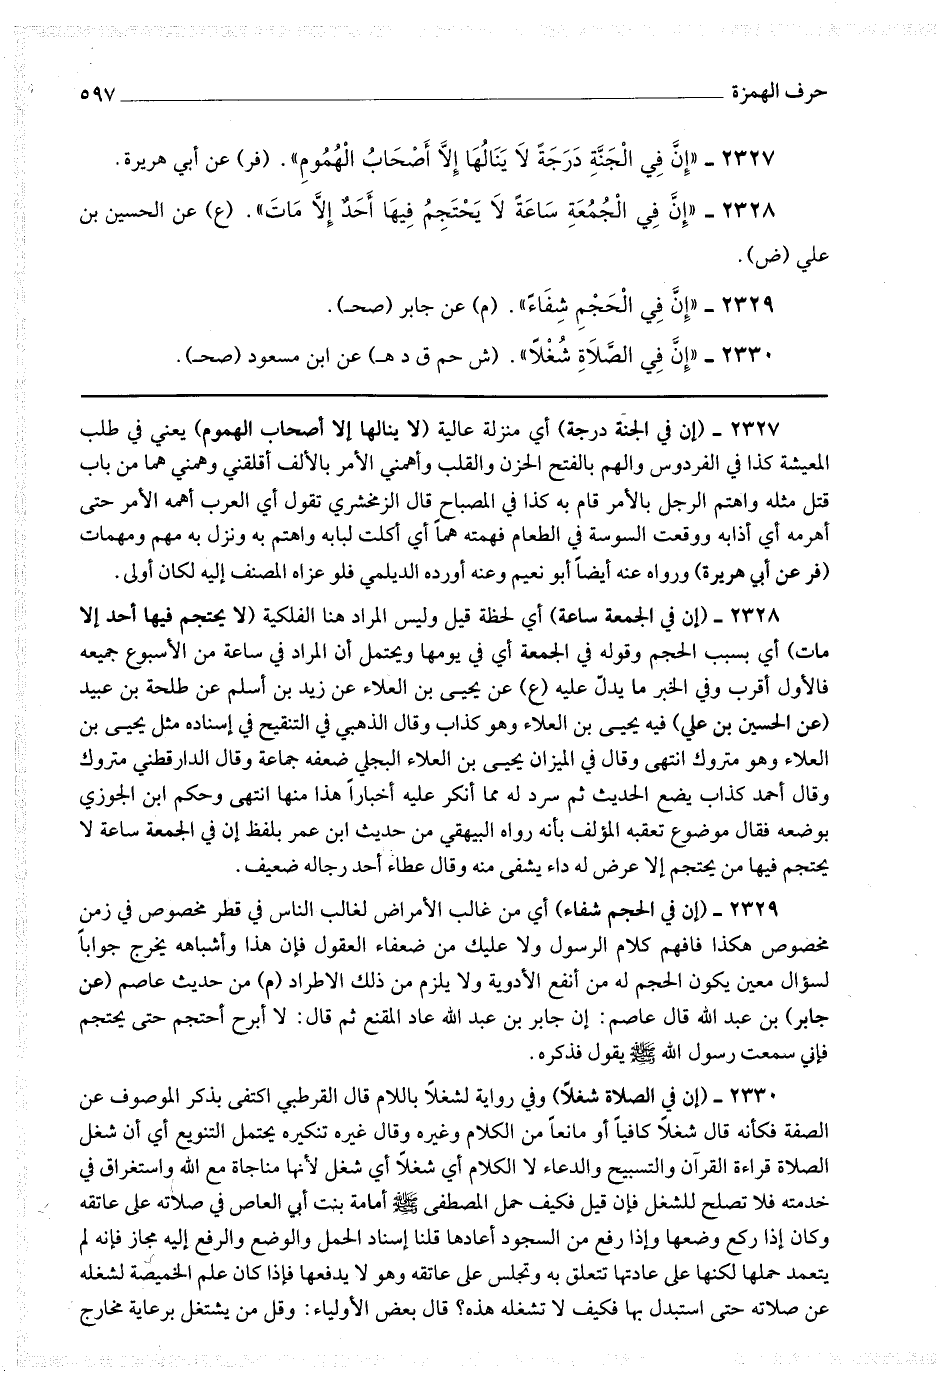 حرف الهمزة ٥٩٧
٢٣٢٧ ـ «إِنَّ فِي الْجَنَّةِ دَرَجَةً لَا يَنَالُهَا إِلَّا أَصْحَابُ الْهُمُومِ». (فر) عن أبي هريرة.
٢٣٢٨ ـ «إِنَّ فِي الْجُمُعَةِ سَاعَةً لَا يَحْتَجِمُ فِيهَا أَحَدٌ إِلَّا مَاتَ». (ع) عن الحسين بن
علي (ض).
٢٣٢٩ ـ «إِنَّ فِي الْحَجْمِ شِفَاءً». (م) عن جابر (صحـ).
٢٣٣٠ ـ «إِنَّ فِي الصَّلَاةِ شُغْلاً». (ش حم ق د هـ) عن ابن مسعود (صحـ).
٢٣٢٧ ـ (إن في الجنة درجة) أي منزلة عالية (لا ينالها إلا أصحاب الهموم) يعني في طلب
المعيشة كذا في الفردوس والهم بالفتح الحزن والقلب وأهمني الأمر بالألف أقلقني وهمني هما من باب
قتل مثله واهتم الرجل بالأمر قام به كذا في المصباح قال الزمخشري تقول أي العرب أهمه الأمر حتى
أهرمه أي أذابه ووقعت السوسة في الطعام فهمته هماً أي أكلت لبابه واهتم به ونزل به مهم ومهمات
(فر عن أبي هريرة) ورواه عنه أيضاً أبو نعيم وعنه أورده الديلمي فلو عزاه المصنف إليه لكان أولى.
٢٣٢٨ ـ (إن في الجمعة ساعة) أي لحظة قيل وليس المراد هنا الفلكية (لا يحتجم فيها أحد إلا
مات) أي بسبب الحجم وقوله في الجمعة أي في يومها ويحتمل أن المراد في ساعة من الأسبوع جميعه
فالأول أقرب وفي الخبر ما يدلّ عليه (ع) عن يحيـى بن العلاء عن زيد بن أسلم عن طلحة بن عبيد
(عن الحسين بن علي) فيه يحيـى بن العلاء وهو كذاب وقال الذهبي في التنقيح في إسناده مثل يحيـى بن
العلاء وهو متروك انتهى وقال في الميزان يحيـى بن العلاء البجلي ضعفه جماعة وقال الدارقطني متروك
وقال أحمد كذاب يضع الحديث ثم سرد له مما أنكر عليه أخباراً هذا منها انتهى وحكم ابن الجوزي
بوضعه فقال موضوع تعقبه المؤلف بأنه رواه البيهقي من حديث ابن عمر بلفظ إن في الجمعة ساعة لا
يحتجم فيها من يحتجم إلا عرض له داء يشفى منه وقال عطاء أحد رجاله ضعيف.
٢٣٢٩ ـ (إن في الحجم شفاء) أي من غالب الأمراض لغالب الناس في قطر مخصوص في زمن
مخصوص هكذا فافهم كلام الرسول ولا عليك من ضعفاء العقول فإن هذا وأشباهه يخرج جواباً
لسؤال معين يكون الحجم له من أنفع الأدوية ولا يلزم من ذلك الاطراد (م) من حديث عاصم (عن
جابر) بن عبد الله قال عاصم: إن جابر بن عبد الله عاد المقنع ثم قال: لا أبرح أحتجم حتى يحتجم
فإني سمعت رسول الله ﷺ يقول فذكره.
٢٣٣٠ ـ (إن في الصلاة شغلاً) وفي رواية لشغلاً باللام قال القرطبي اكتفى بذكر الموصوف عن
الصفة فكأنه قال شغلاً كافياً أو مانعاً من الكلام وغيره وقال غيره تنكيره يحتمل التنويع أي أن شغل
الصلاة قراءة القرآن والتسبيح والدعاء لا الكلام أي شغلاً أي شغل لأنها مناجاة مع الله واستغراق في
خدمته فلا تصلح للشغل فإن قيل فكيف حمل المصطفى ﷺ أمامة بنت أبي العاص في صلاته على عاتقه
وكان إذا ركع وضعها وإذا رفع من السجود أعادها قلنا إسناد الحمل والوضع والرفع إليه مجاز فإنه لم
يتعمد حملها لكنها على عادتها تتعلق به وتجلس على عاتقه وهو لا يدفعها فإذا كان علم الخميصة لشغله
عن صلاته حتى استبدل بها فكيف لا تشغله هذه؟ قال بعض الأولياء: وقل من يشتغل برعاية مخارج